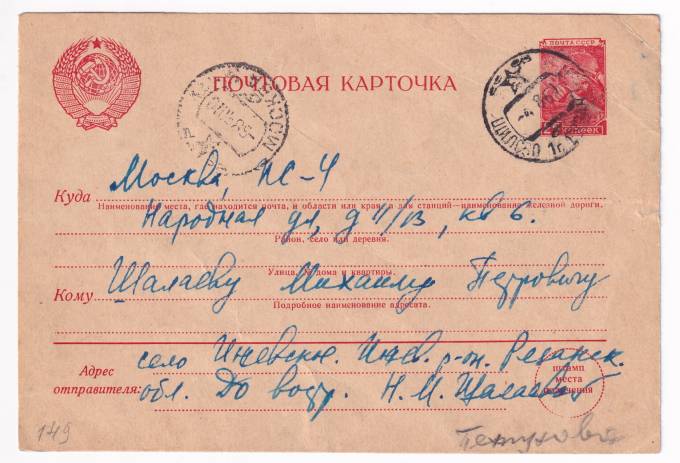 ПОЧТА СССР
ПОЧТОВАЯ КАРТОЧКА
МОСКВА
ШИЛОВО
Москва, ЖС-4
Куда
Наименование места, где находится почта, и области или края, а для станций—наименование железной дороги.
Народная ул, д 11/13, кв 6.
Район, село или деревня.
Улица, № дома и квартиры.
Кому Шалаеву Михаилу Петровичу
Подробное наименование адресата.
село Ижевское. Ижев. р-он. Рязанск.
Адрес отправителя: обл. До востр. Н. М. Шалаева
штамп места назначения
149